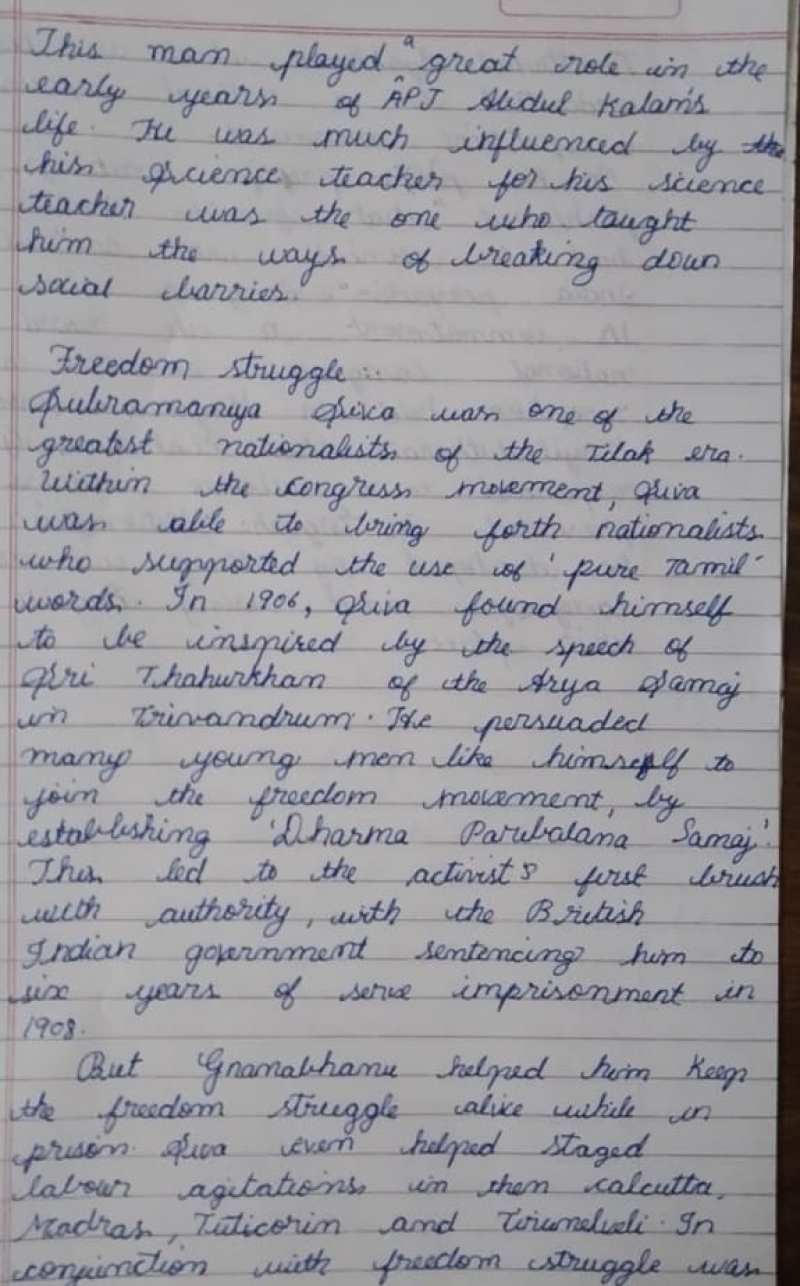 This man played a great role in the
early years of APJ Abdul Kalam's
life. He was much influenced by the
his Science teacher for his science
teacher was the one who taught
him the ways of breaking down
social barries.
Freedom struggle :
Subramaniya Siva was one of the
greatest nationalists of the Tilak era.
Within the congress movement, Siva
was able to bring forth nationalists
who supported the use of 'pure Tamil'
words. In 1906, Siva found himself
to be inspired by the speech of
Sri Thahurkhan of the Arya Samaj
in Trivandrum. He persuaded
many young men like himself to
join the freedom movement, by
establishing 'Dharma Paribalana Samaj'.
This led to the activist's first brush
with authority, with the British
Indian government sentencing him to
six years of serve imprisonment in
1908.
But 'Gnanabhanu helped him keep
the freedom struggle alive while in
prison. Siva even helped staged
labour agitations in then calcutta,
Madras, Tuticorin and Tirunelveli. In
conjunction with freedom struggle was